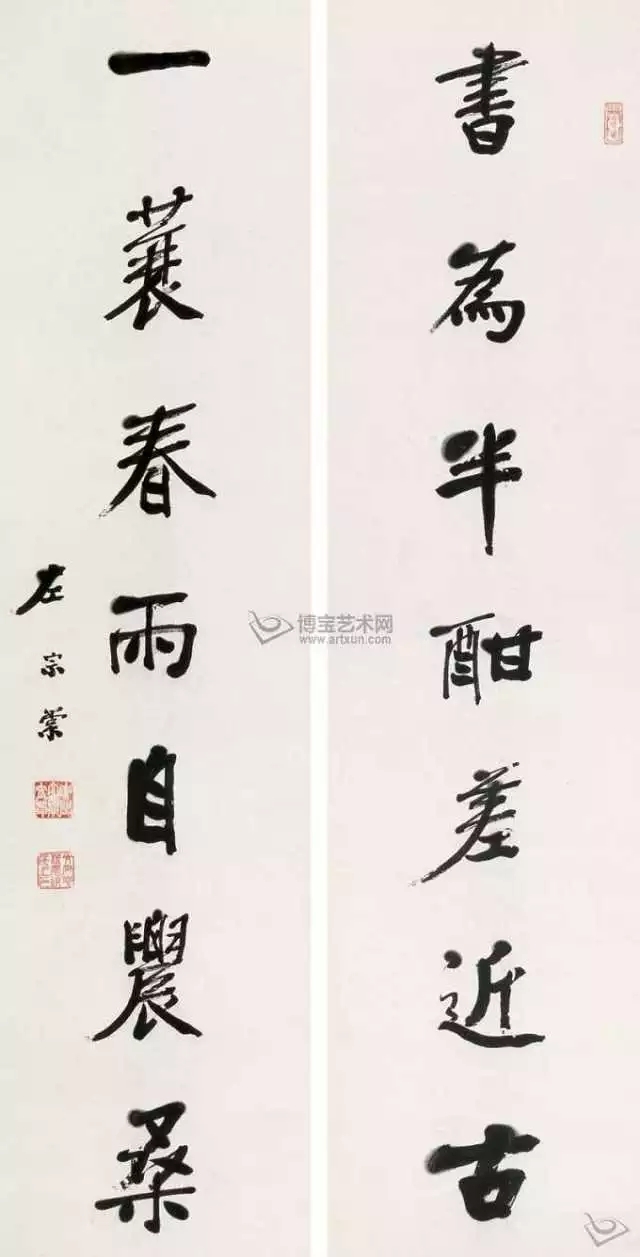 書為半酣差近古
一蓑春雨自農桑
左宗棠
博宝艺术网
www.artxun.com